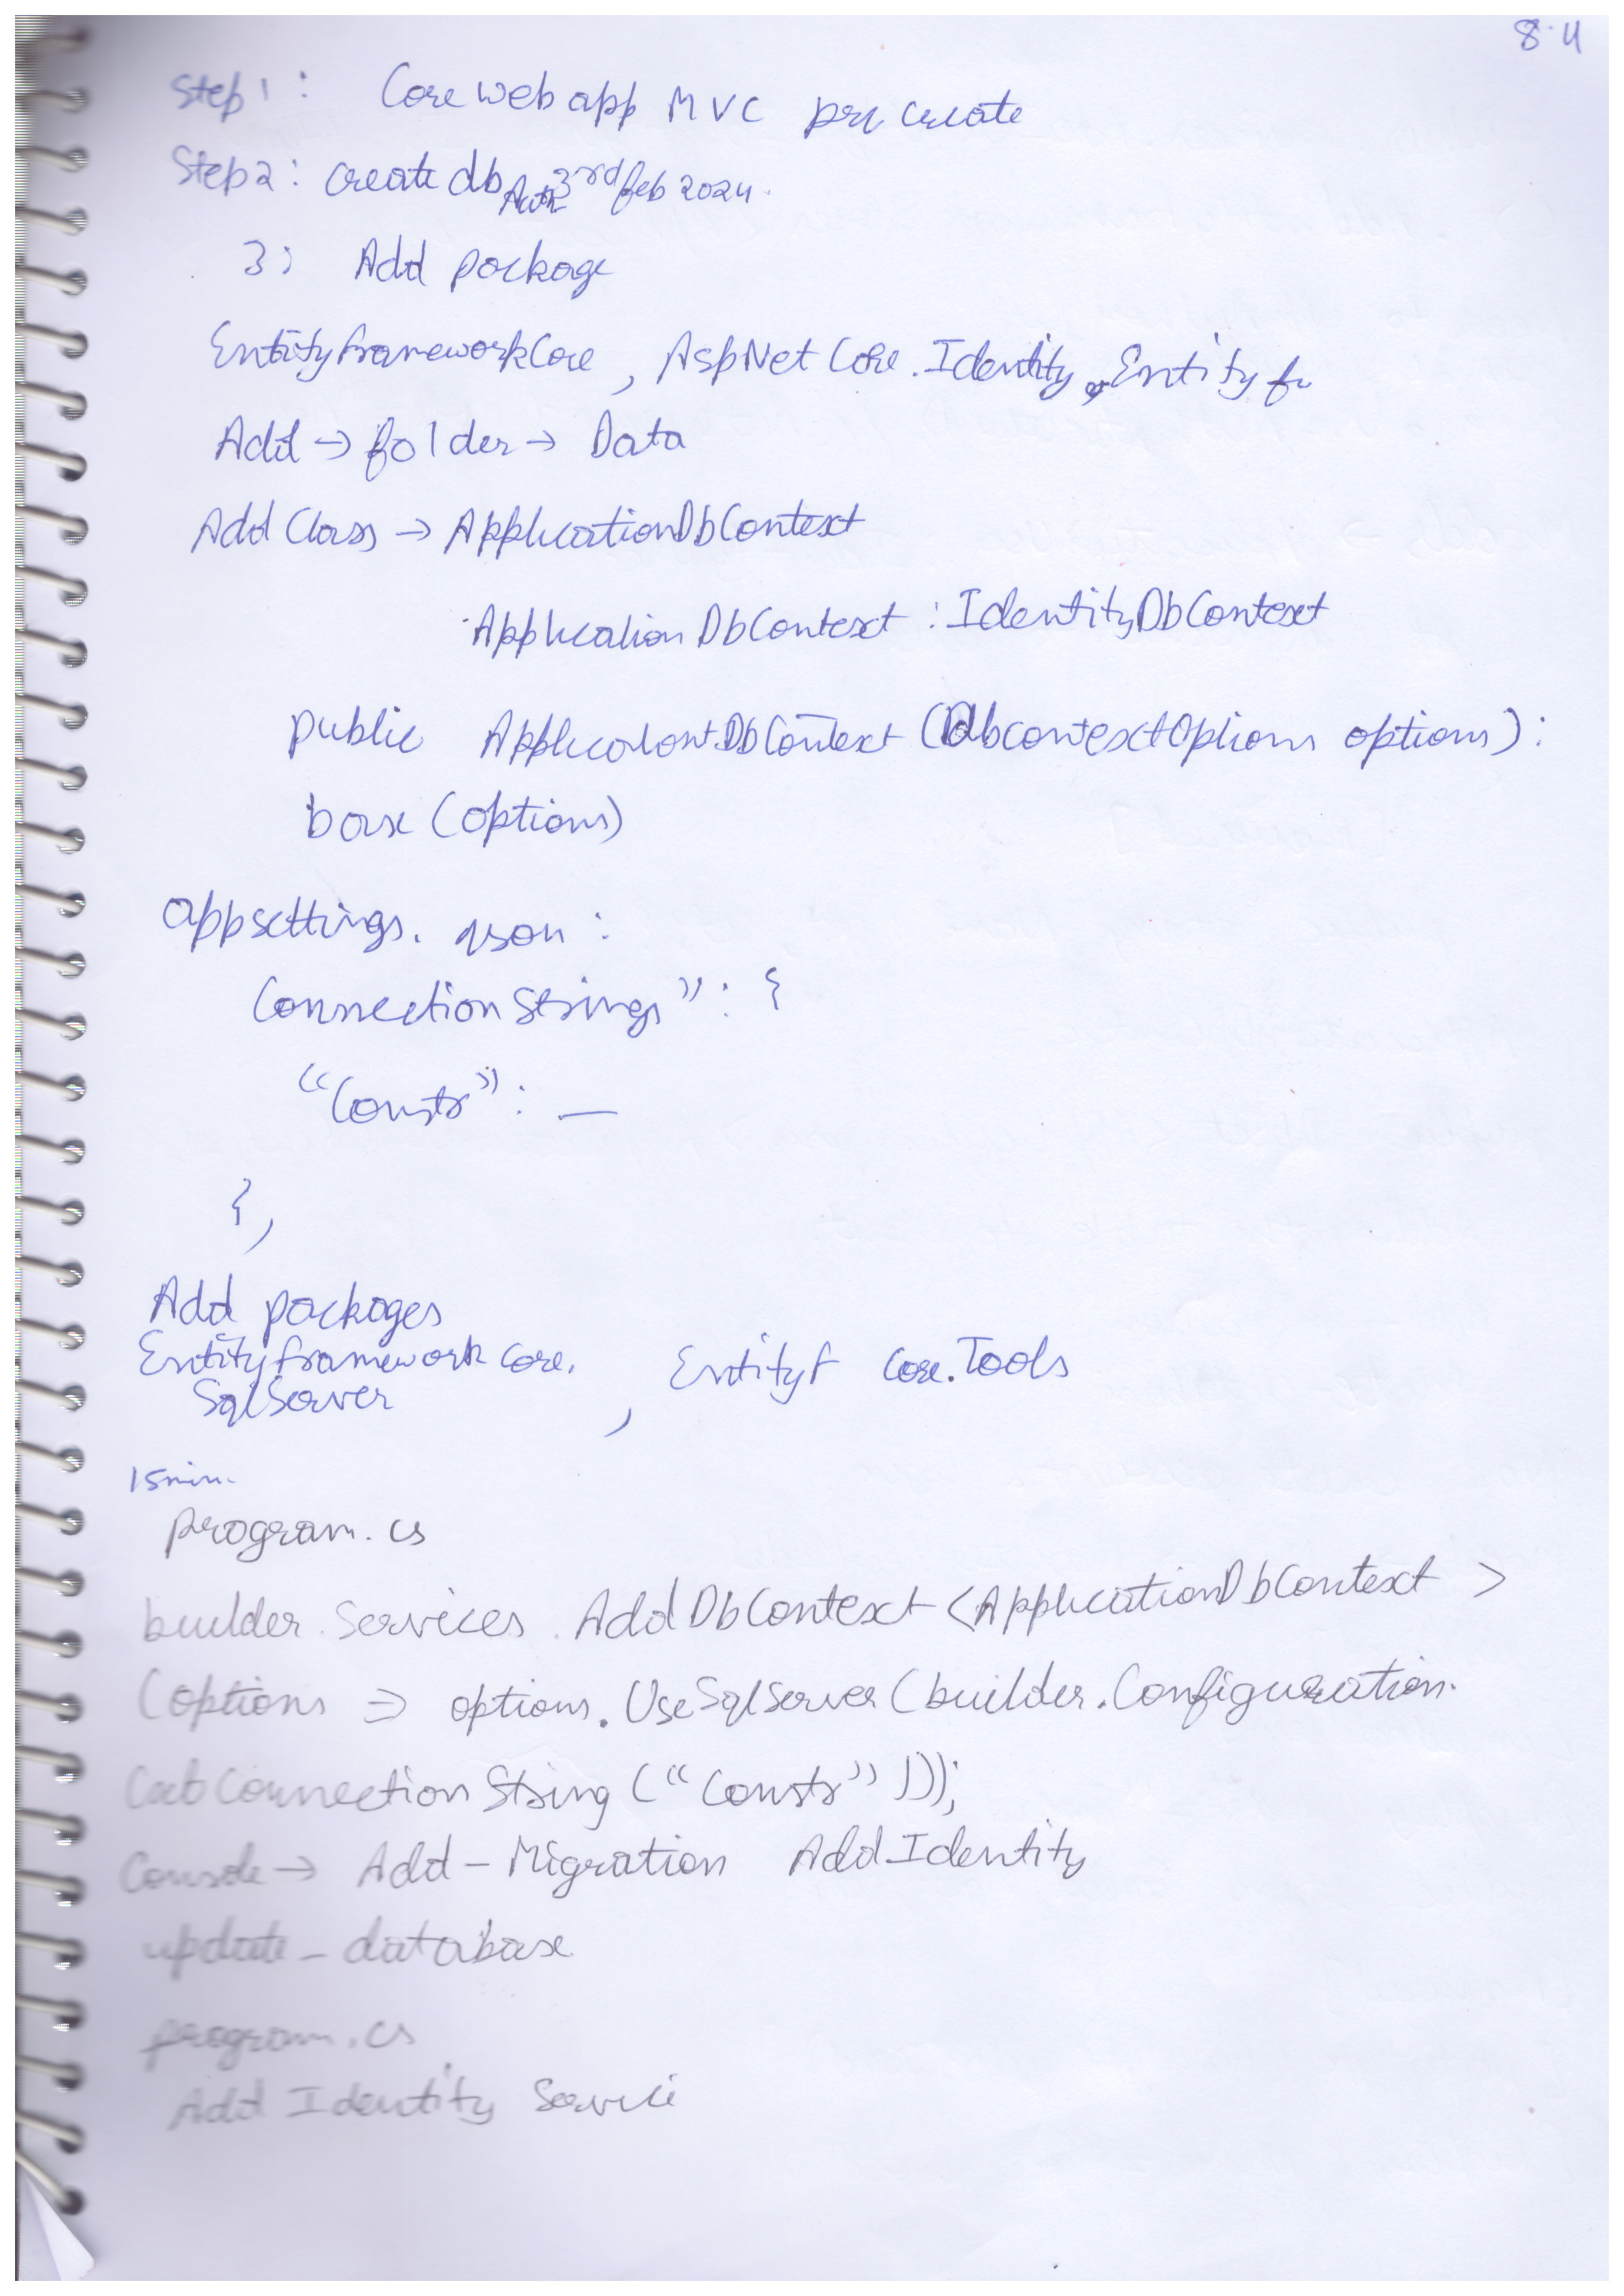 8.4
Step 1 : Core web app MVC create
Step 2 : create db Auth 3rd feb 2024.
3: Add package
EntityframeworkCore, AspNetCore.Identity.Entityfr
Add → folder → Data
Add Class → ApplicationDbContext
ApplicationDbContext : IdentityDbContext
public ApplicationDbContext (DbcontextOptions options) :
base (options)
appsettings.json :
ConnectionStrings" : {
"Constr" : —
},
Add packages
Entityframework core. , EntityF Core.Tools
SqlServer
15min.
program.cs
builder.Services.AddDbContext <ApplicationDbContext >
(options => options.UseSqlServer (builder.Configuration.
GetConnectionString ("Constr")));
Console → Add-Migration AddIdentity
update-database
program.cs
Add Identity Service